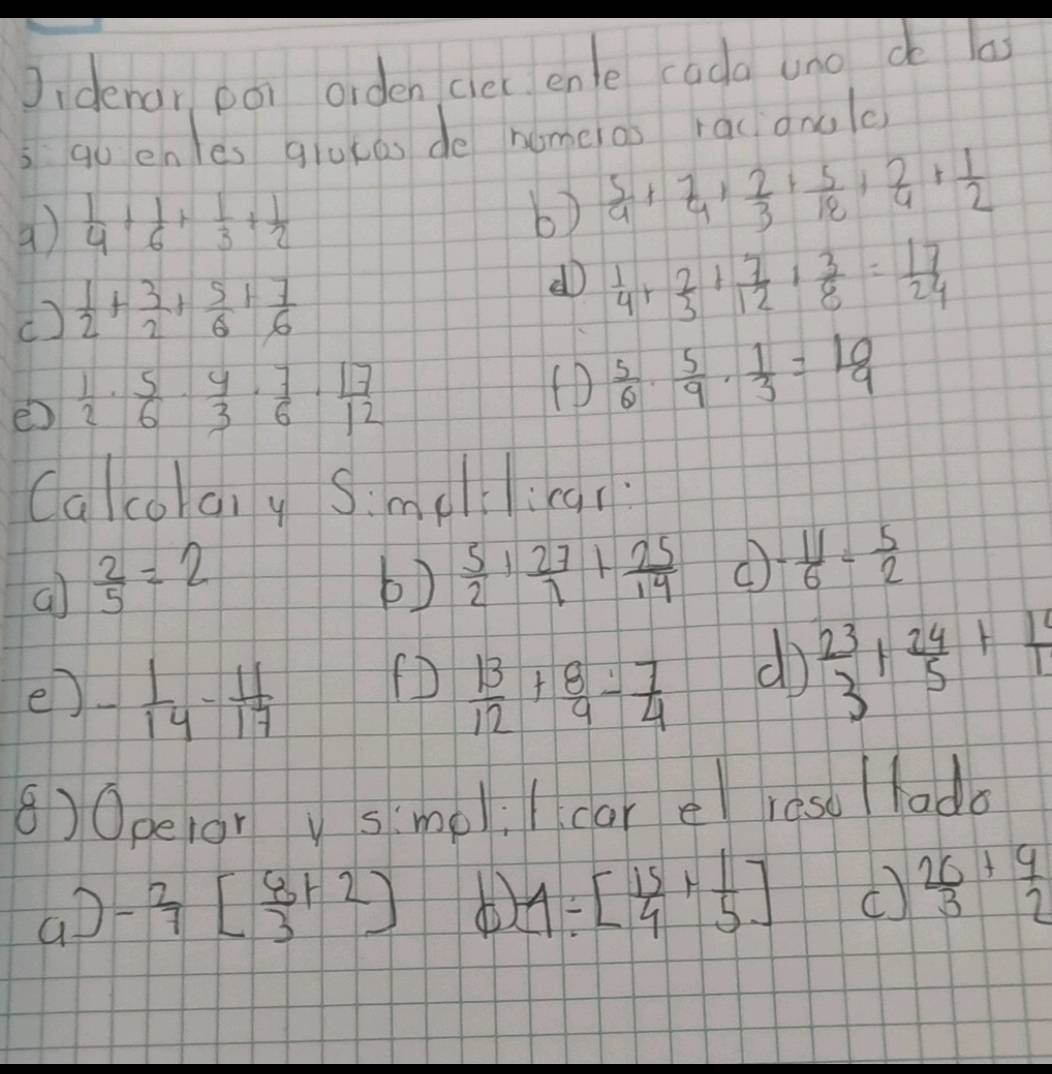 Ordenar por orden creciente cada uno de las
siguientes grupos de números racionales
a) 1/4 + 1/6 + 1/3 + 1/2 b) 5/4 + 7/4 + 2/3 + 5/12 + 2/4 + 1/2
c) 1/2 + 3/2 + 5/6 + 7/6 d) 1/4 + 2/3 + 7/12 + 3/8 = 17/24
e) 1/2 · 5/6 · 4/3 · 7/6 · 17/12 f) 5/6 · 5/9 · 1/3 =
Calcolar y Simplificar:
a) 2/5 = 2 b) 5/2 + 27/1 + 25/14 c) - 11/6 - 5/2
e) - 1/14 - 11/17 f) 13/12 + 8/9 - 7/4 d) 23/3 + 24/5 +
8) Operar y simplificar el resultado
a) - 2/7 [8/3 + 2] b) 1 ÷ [15/4 + 1/5] c) 26/3 + 9/2